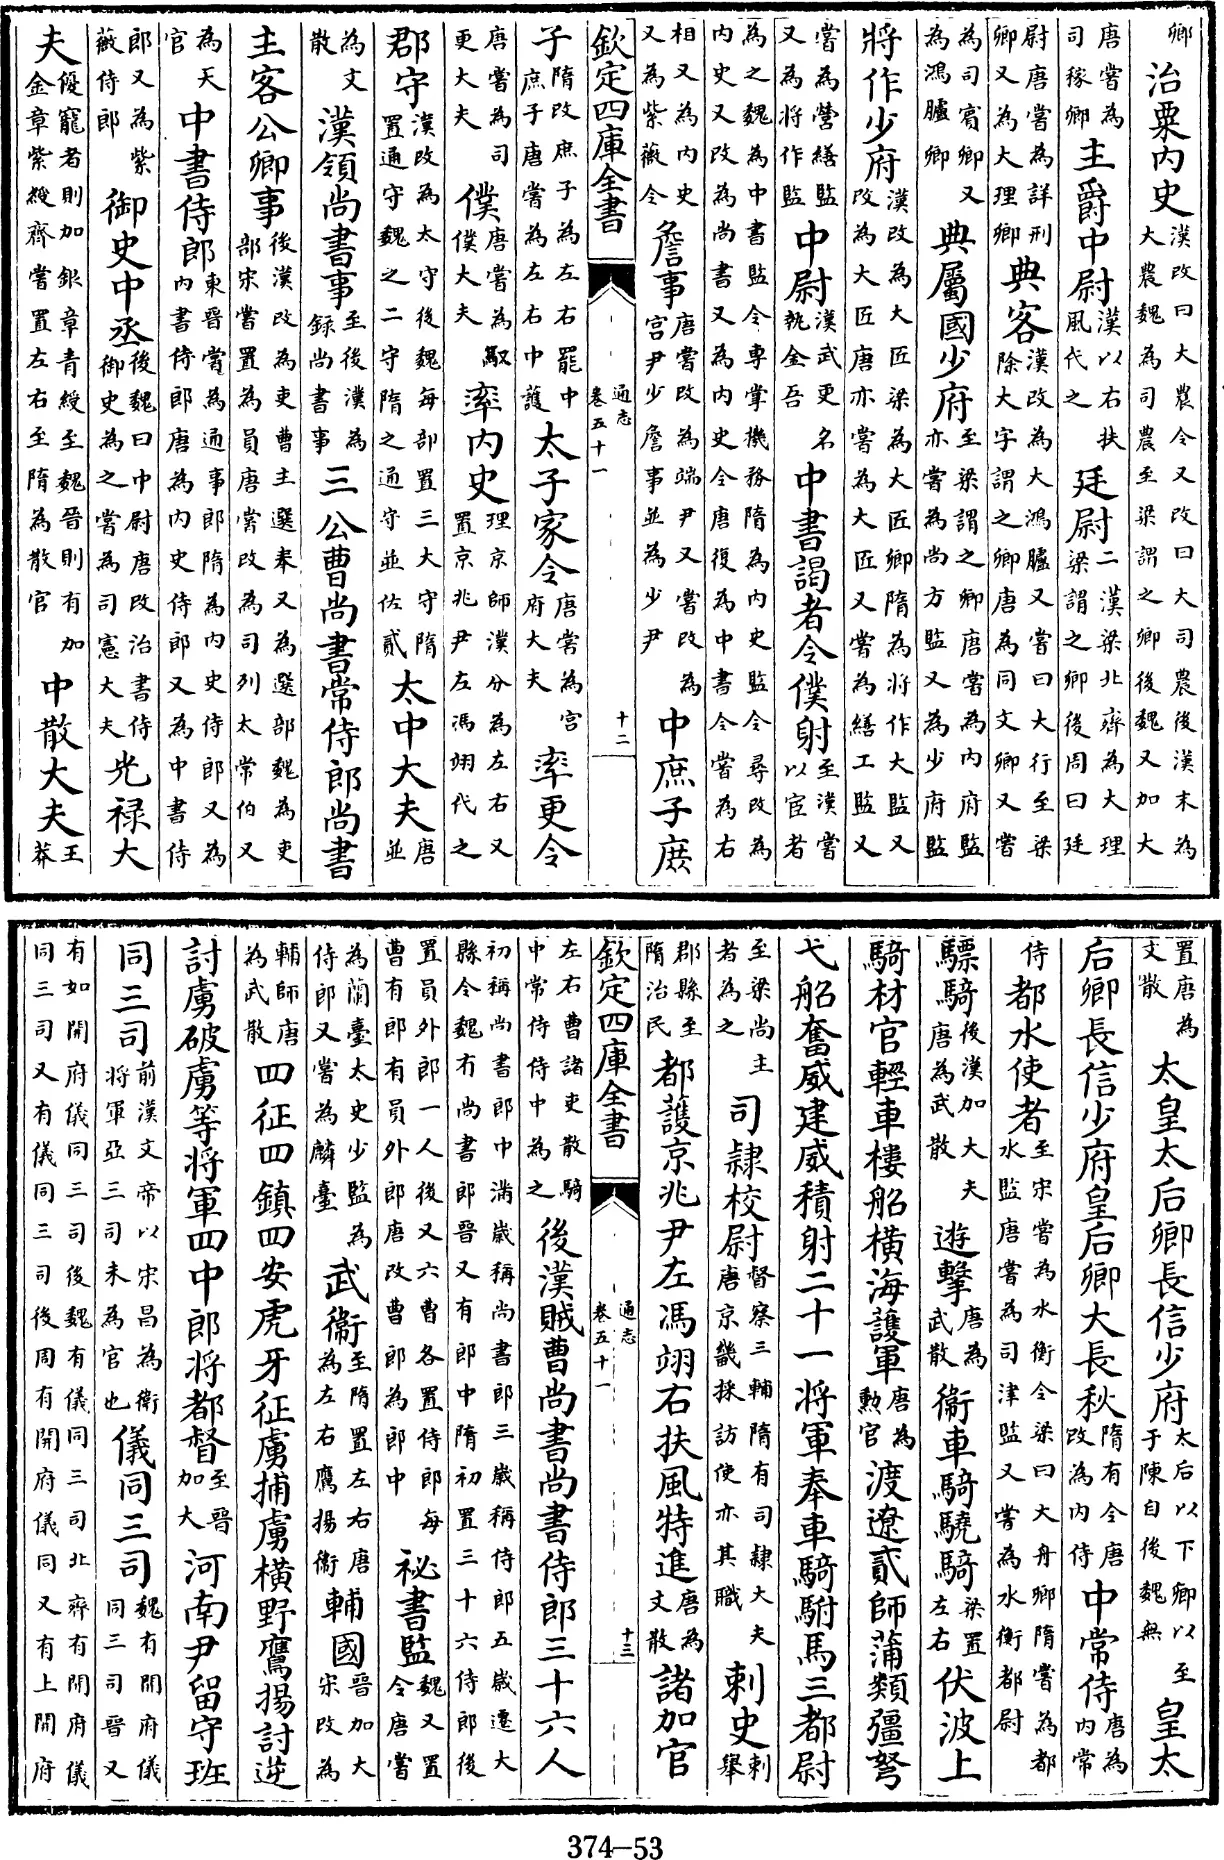 卿治粟內史漢改曰大農令又改曰大司農後漢末為大農魏為司農至梁謂之卿後魏又加大
唐嘗為司稼卿主爵中尉漢以右扶風代之廷尉二漢梁北齊為大理梁謂之卿後周曰廷
尉唐嘗為詳刑卿又為大理卿典客漢改為大鴻臚又嘗曰大行至梁除大字謂之卿唐為同文卿又嘗
為司賓卿又為鴻臚卿典屬國少府至梁謂之卿唐嘗為內府監亦嘗為尚方監又為少府監
將作少府漢改為大匠梁為大匠卿隋為將作大監又改為大匠唐亦嘗為大匠又嘗為繕工監又
嘗為營繕監又為將作監中尉漢武更名執金吾中書謁者令僕射至漢嘗以宦者
為之魏為中書監令專掌機務隋為內史監令尋改為內史又改為尚書又為內史令唐復為中書令嘗為右
相又為內史又為紫薇令詹事唐嘗改為端尹又嘗改為宮尹少詹事並為少尹中庶子庶
欽定四庫全書 通志卷五十一 十二
子隋改庶子為左右罷中庶子唐嘗為左右中護太子家令唐嘗為宮府大夫率更令
唐嘗為司更大夫僕唐嘗為馭僕大夫率內史理京師漢分為左右又置京兆尹左馮翊代之
郡守漢改為太守後魏每郡置三大守隋置通守魏之二守隋之通守並佐貳太中大夫唐並
為文散漢領尚書事至後漢為録尚書事三公曹尚書常侍郎尚書
主客公卿事後漢改為吏曹主選奉又為選部魏為吏部宋嘗置為員唐嘗改為司列太常伯又
為天官中書侍郎東晉嘗為通事郎隋為內史侍郎又為內書侍郎唐為內史侍郎又為中書侍
郎又為紫薇侍郎御史中丞後魏曰中尉唐改治書侍御史為之嘗為司憲大夫光祿大
夫優寵者則加銀章青綬至魏晉則有加金章紫綬齊嘗置左右至隋為散官中散大夫王莽
置唐為文散太皇太后卿長信少府太后以下卿以至于陳自後魏無皇太
后卿長信少府皇后卿大長秋隋有令唐改為內侍中常侍唐為內常
侍都水使者至宋嘗為水衡令梁曰大舟卿隋嘗為都水監唐嘗為司津監又嘗為水衡都尉
驃騎後漢加大夫唐為武散遊擊唐為武散衞車騎驍騎梁置左右伏波上
騎材官輕車樓船橫海護軍唐為勲官渡遼貳師蒲類彊弩
弋船奮威建威積射二十一將軍奉車騎駙馬三都尉
至梁尚主者為之司隸校尉督察三輔隋有司隸大夫唐京畿採訪使亦其職刺史刺舉
郡縣至隋治民都護京兆尹左馮翊右扶風特進唐為文散諸加官
欽定四庫全書 通志卷五十一 十三
左右曹諸吏散騎中常侍侍中為之後漢賊曹尚書尚書侍郎三十六人
初稱尚書郎中滿歲稱尚書郎三歲稱侍郎五歲遷大縣令魏有尚書郎晉又有郎中隋初置三十六侍郎後
置員外郎一人後又六曹各置侍郎每曹有郎有員外郎唐改曹郎為郎中秘書監魏又置令唐嘗
為蘭臺太史少監為侍郎又嘗為麟臺武衞至隋置左右唐為左右鷹揚衞輔國晉加大宋改為
輔師唐為武散四征四鎮四安虎牙征虜捕虜橫野鷹揚討逆
討虜破虜等將軍四中郎將都督至晉加大河南尹留守班
同三司前漢文帝以宋昌為衞將軍亞三司未為官也儀同三司魏有開府儀同三司晉又
有如開府儀同三司後魏有儀同三司北齊有開府儀同三司又有儀同三司後周有開府儀同又有上開府
374-53